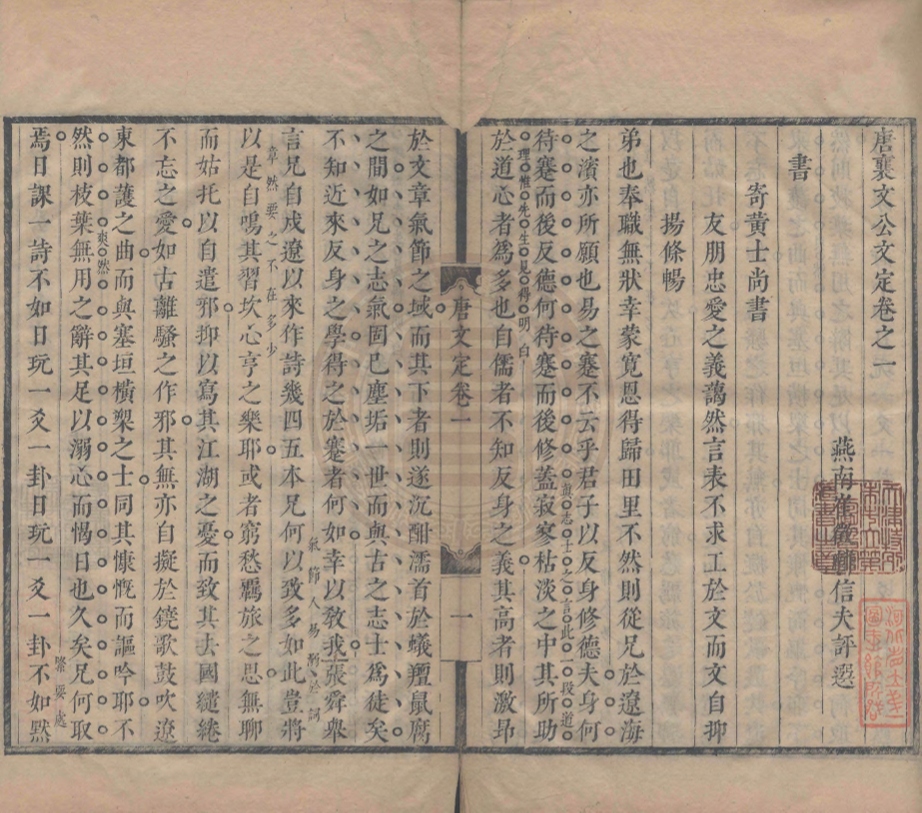 唐襄文公文定卷之一
燕南崔徵麟信夫評選
書
寄黃士尚書
友朋忠愛之義藹然言表不求工於文而文自抑
揚條暢
弟也奉職無狀幸蒙寬恩得歸田里不然則從兄於遼海
之濱亦所願也易之蹇不云乎君子以反身修德夫身何
待蹇而後反德何待蹇而後修蓋寂寥枯淡之中其所助
真志士之言此一段道
理惟先生見得明白
於道心者為多也自儒者不知反身之義其高者則激昂
唐文定卷一
一
於文章氣節之域而其下者則遂沉酣濡首於蟻羶鼠腐
之間如兄之志氣固已塵垢一世而與古之志士為徒矣
不知近來反身之學得之於蹇者何如幸以教我張舜舉
言兄自戍遼以來作詩幾四五本兄何以致多如此豈將
氣節人易
章然要之不在多少
以是自鳴其習坎心亨之樂耶或者窮愁羈旅之思無聊
而姑托以自遣邪抑以寫其江湖之憂而致其去國繾綣
不忘之愛如古離騷之作邪其無亦自擬於鐃歌鼓吹遼
東都護之曲而與塞垣橫槊之士同其慷慨而謳吟耶不
然則枝葉無用之辭其足以溺心而愒日也久矣兄何取
爽然
緊要處
焉日課一詩不如日玩一爻一卦日玩一爻一卦不如默